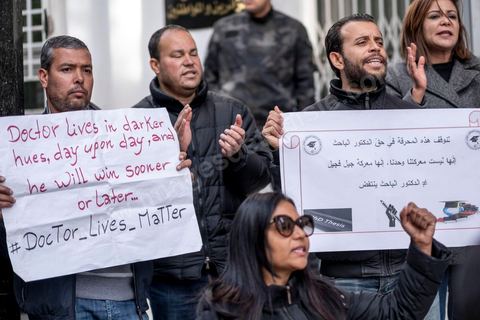 Doctor Lives in darker
hues, day upon day, and
he will win sooner
or later...
#Doctor_Lives_Matter
لتتوقف هذه المحرقة في حق الدكتور الباحث
إنها ليست معركتنا وحدنا، إنها معركة جيل فجيل
≠ الدكتور الباحث ينتفض
PhD THESIS